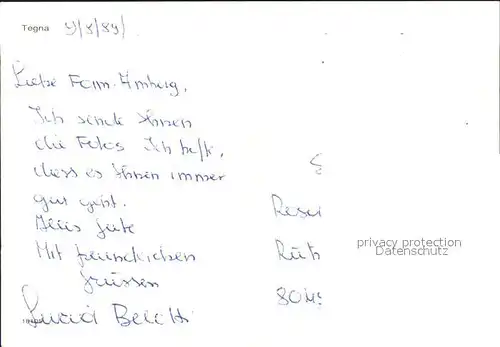 Tegna 9/3/89/
Liebe Fam. Amberg,
Ich sende Ihnen
die Fotos Ich hoffe,
dass es Ihnen immer
gut geht.
Alles gute
Mit freundlichen
Grüssen
Lucia
privacy protection
Datenschutz